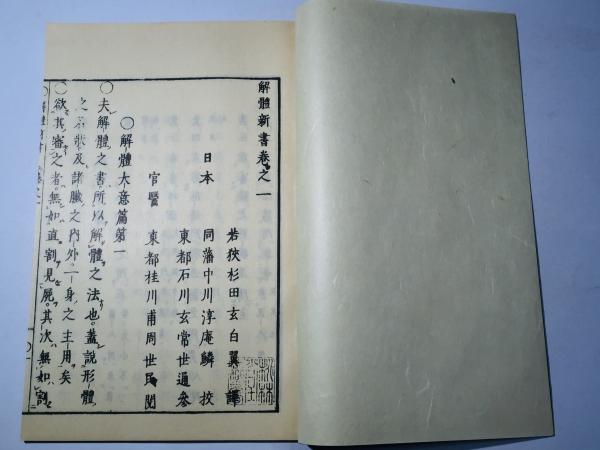 解體新書卷之一
若狹杉田玄白翼譯
日本
同藩中川淳庵鱗挍
東都石川玄常世通參
官醫
東都桂川甫周世民閱
〇解體大意篇第一
〇夫解體之書所以解體之法也蓋說形體
之名狀及諸臟之内外一身之主用矣
〇欲其審之者無如直割見屍其次無如割